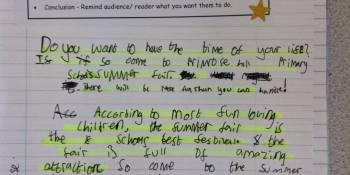 • Conclusion - Remind audience/ reader what you want them to do.
Do you want to have the time of your life?
If so come to PRIMROSE hill Primary
Schools SUMMER fair.
There will be more fun than you can handle!
According to most fun loving
children, the summer fair is
the schools best festival & the
fair is full of amazing
attractions So come to the summer